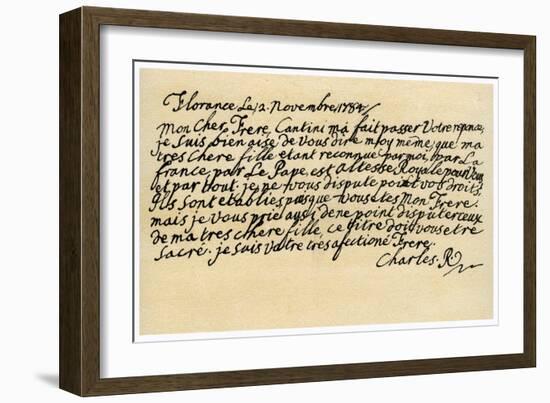 Florance Le 12. Novembre. 1784
Mon Cher Frere, Cantini ma fait passer Votre reponce,
je Suis bien aise de Vous dire moy même, que ma
tres Chere fille étant reconnue par moi, par La
france, par Le Pape, est altesse Royalle pour Vous
et par tout. je ne vous dispute point vos droits,
Ils Sont établies puisque Vous étes Mon Frere.
mais je Vous prie aussi de ne point disputer ceux
de ma tres chere fille, ce titre doit vous etre
Sacré. je suis Votre trés afectioné Frere.
Charles. R